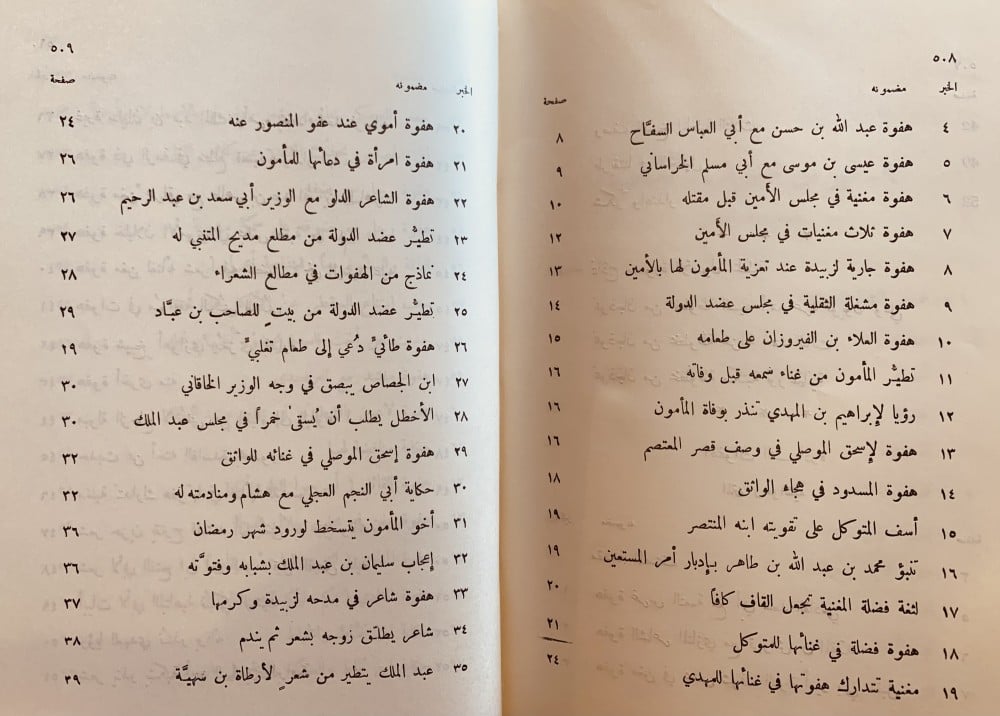 ٥٠٨
الخبر مضمونه صفحة
٤ هفوة عبد الله بن حسن مع أبي العباس السفّاح ٨
٥ هفوة عيسى بن موسى مع أبي مسلم الخراساني ٩
٦ هفوة مغنية في مجلس الأمين قبل مقتله ١٠
٧ هفوة ثلاث مغنيات في مجلس الأمين ١٢
٨ هفوة جارية لزبيدة عند تعزية المأمون لها بالأمين ١٣
٩ هفوة مشغلة الثقلية في مجلس عضد الدولة ١٤
١٠ هفوة العلاء بن الفيروزان على طعامه ١٥
١١ تطيّر المأمون من غناء سمعه قبل وفاته ١٦
١٢ رؤيا لإبراهيم بن المهدي تنذر بوفاة المأمون ١٦
١٣ هفوة لإسحق الموصلي في وصف قصر المعتصم ١٦
١٤ هفوة المسدود في هجاء الواثق ١٨
١٥ أسف المتوكل على تقويته ابنه المنتصر ١٩
١٦ تنبؤ محمد بن عبد الله بن طاهر بإدبار أمر المستعين ١٩
١٧ لثغة فضلة المغنية تجعل القاف كافاً ٢٠
١٨ هفوة فضلة في غنائها للمتوكل ٢١
١٩ مغنية تتدارك هفوتها في غنائها للمهدي ٢٤
٥٠٩
الخبر مضمونه صفحة
٢٠ هفوة أموي عند عفو المنصور عنه ٢٤
٢١ هفوة امرأة في دعائها للمأمون ٢٦
٢٢ هفوة الشاعر الدلو مع الوزير أبي سعد بن عبد الرحيم ٢٦
٢٣ تطيُّر عضد الدولة من مطلع مديح المتنبي له ٢٧
٢٤ نماذج من الهفوات في مطالع الشعراء ٢٨
٢٥ تطيُّر عضد الدولة من بيتٍ للصاحب بن عبَّاد ٢٩
٢٦ هفوة طائيٍّ دُعي إلى طعام تغلبيٍّ ١٩
٢٧ ابن الجصاص يبصق في وجه الوزير الخاقاني ٣٠
٢٨ الأخطل يطلب أن يُسقىْ خمراً في مجلس عبد الملك ٣٠
٢٩ هفوة إسحق الموصلي في غنائه للواثق ٣٢
٣٠ حكاية أبي النجم العجلي مع هشام ومنادمته له ٣٢
٣١ أخو المأمون يتسخط لورود شهر رمضان ٣٦
٣٢ إعجاب سليمان بن عبد الملك بشبابه وفتوَّته ٣٦
٣٣ هفوة شاعر في مدحه لزبيدة وكرمها ٣٧
٣٤ شاعر يطلّق زوجه بشعر ثم يندم ٣٨
٣٥ عبد الملك يتطير من شعرٍ لأرطاة بن سهيَّة ٣٩